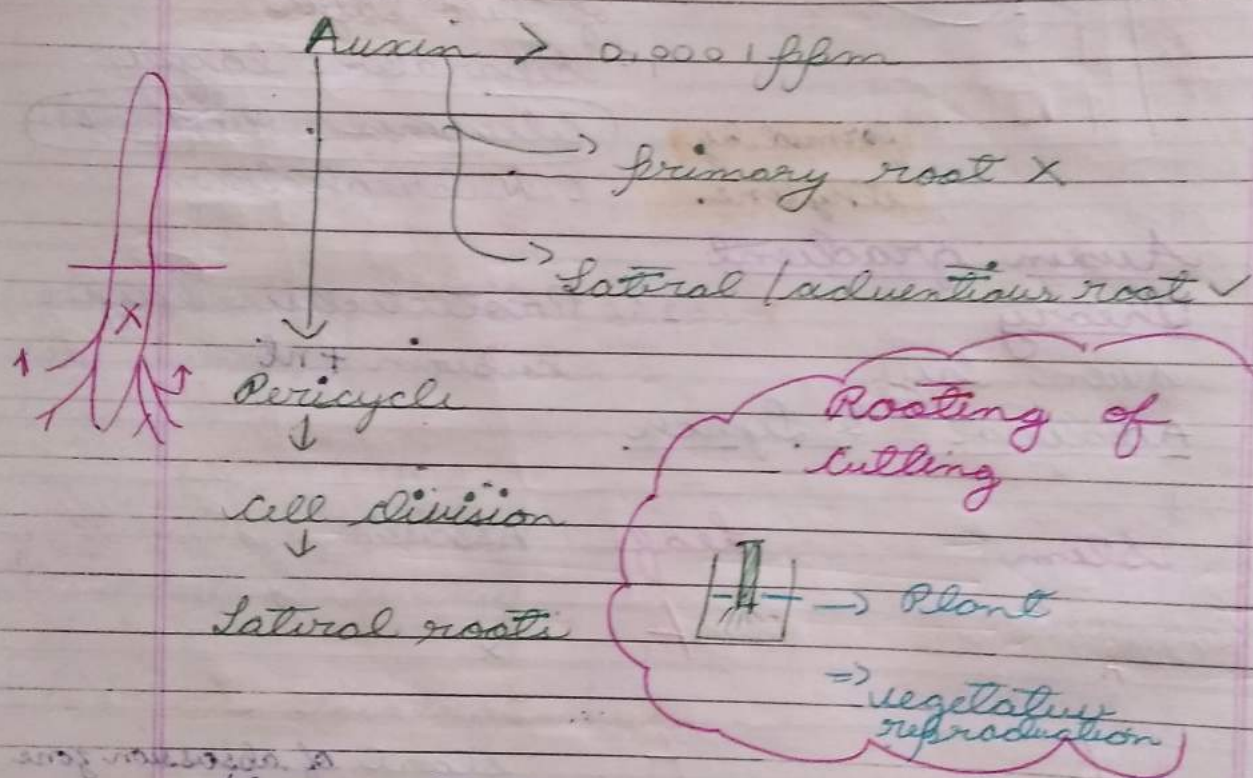 Auxin > 0.0001 ppm
primary root X
lateral / adventious root ✓
Pericycle
↓
cell division
↓
lateral roots
X
Rooting of
cutting
→ Plant
⇒ vegetative
reproduction